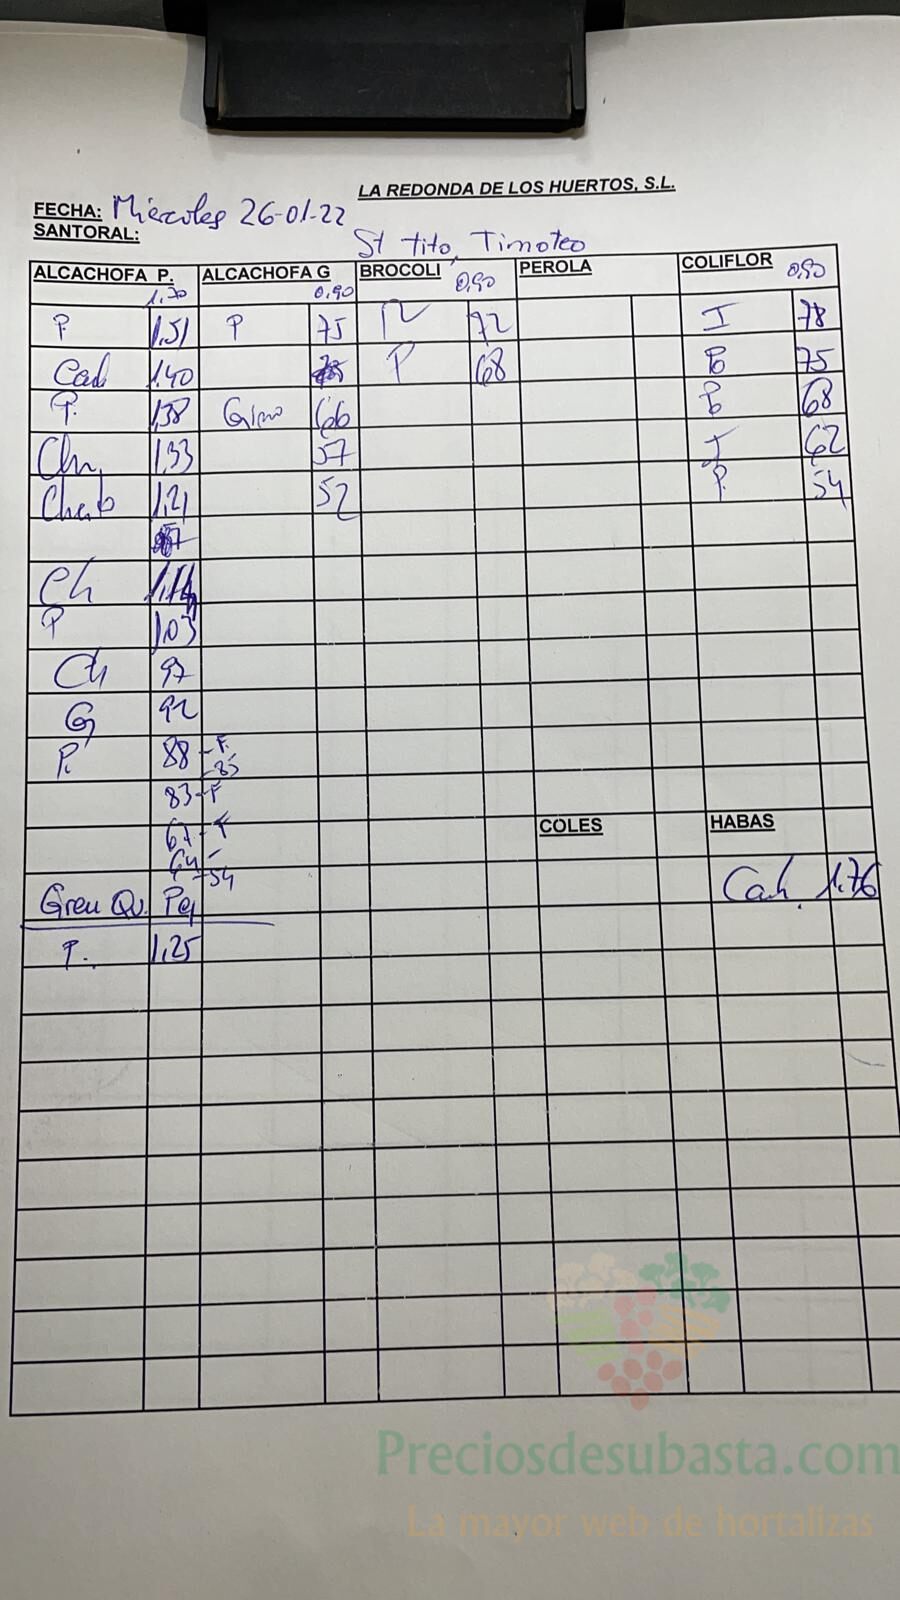 LA REDONDA DE LOS HUERTOS, S.L.
FECHA: Miércoles 26-01-22
SANTORAL: St tito, Timoteo
ALCACHOFA P. ALCACHOFA G BROCOLI PEROLA COLIFLOR
0,90 0,90 0,90
P. 1,51 P 75 72 I 78
1,40 P 68 75
P. 1,38 66 68
1,33 57 62
1,21 52 P. 54
Ch
P 1,03
Ch 97
G 92
P. 88 - F.
- 85
83 - F
67 - F
COLES HABAS
64 -
- 54
1.76
P. 1,25
Preciosdesubasta.com
La mayor web de hortalizas